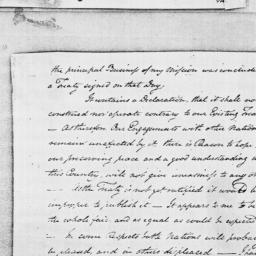 the principal Business of my Mission was conclude
a Treaty signed on that Day.
It contains a Declaration, that it shall no
construed nor operate contrary to our Existing Trea
— As therefore Our Engagements with other Nation
remain unaffected by it there is Reason to hope
our preserving peace and a good understanding w
this Country, will not give uneasiness to any oth
— As the Treaty is not yet ratified it would be
improper to publish it — It appears to me to be
the whole fair and as equal as could be expected
— In some respects both Nations will probab
be pleased, and in others displeased —